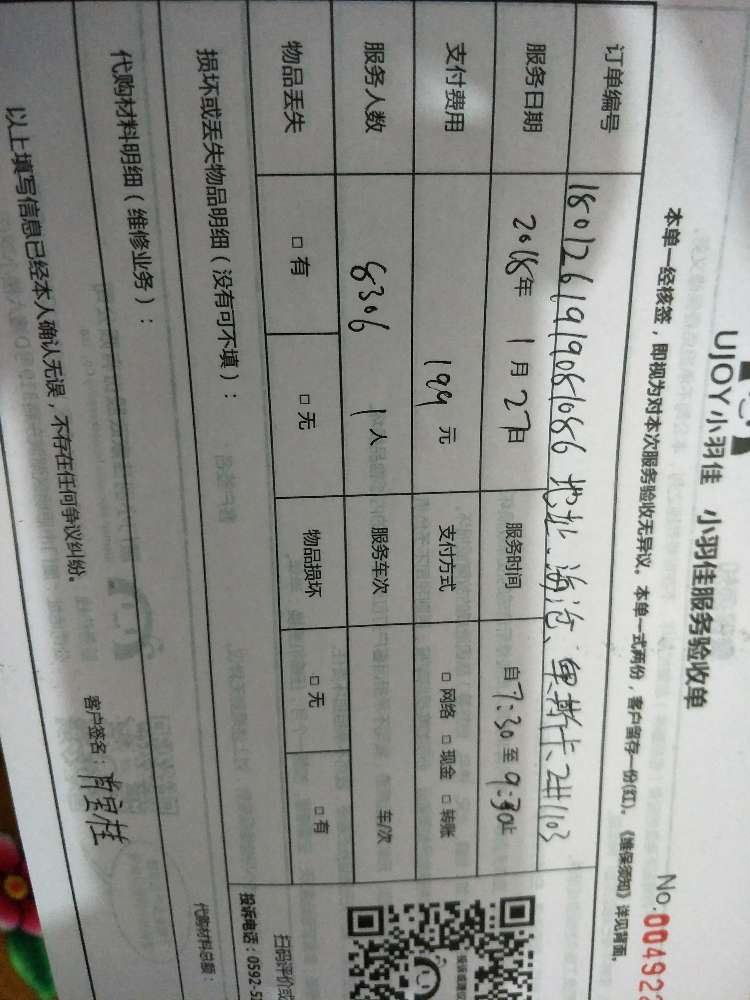 UJOY小羽佳 小羽佳服务验收单
No.00492
本单一经核签，即视为对本次服务验收无异议。本单一式两份，客户留存一份(红)。《维保须知》详见背面。
订单编号 1801261919081086 地址、海沧、奥斯卡、2#1103
服务日期 2018年 1月27日 服务时间 自7:30至9:30止
支付费用 199元 支付方式 □网络 □现金 □转账
服务人数 8306 1人 服务车次 车/次
物品丢失 □有 □无 物品损坏 □无 □有
损坏或丢失物品明细（没有可不填）：
扫码评价或
投诉电话：0592-5
代购材料明细（维修业务）：
代购材料总额：
以上填写信息已经本人确认无误，不存在任何争议纠纷。
客户签名：肖宝桂